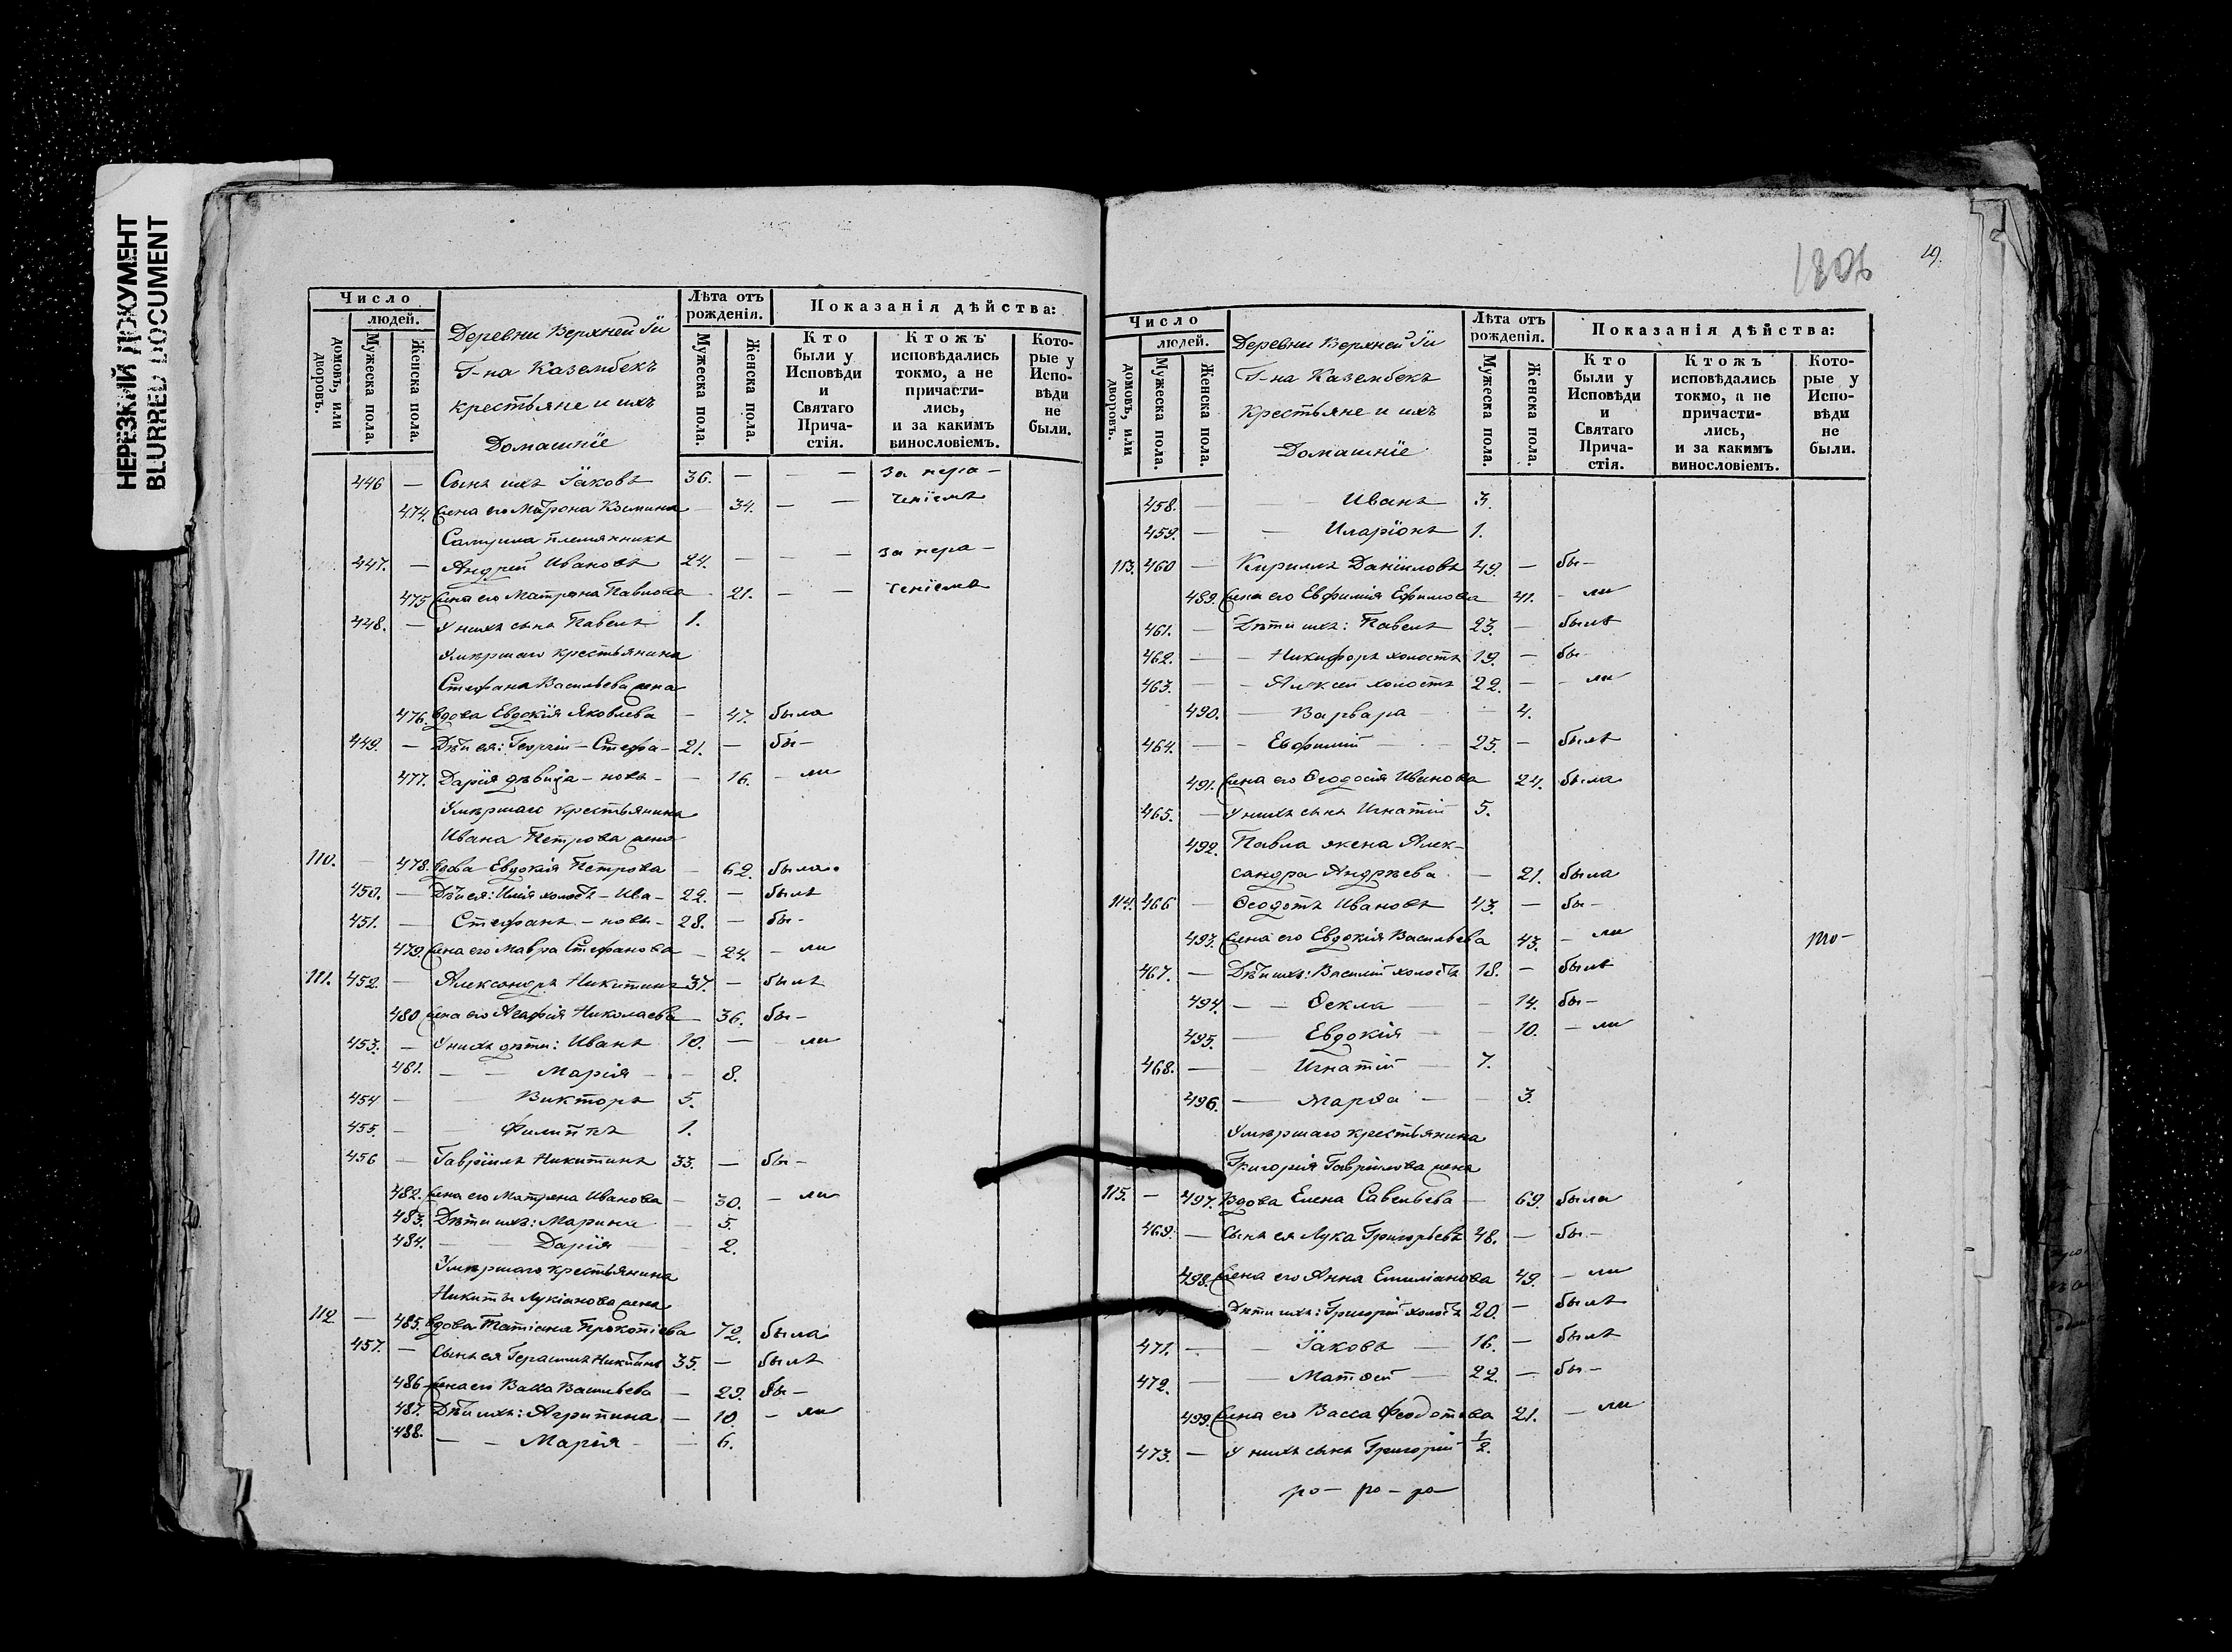 НЕРЕЗКИЙ ДОКУМЕНТ
BLURRED DOCUMENT
Число
людей.
домовъ, или дворовъ.
Мужеска пола.
Женска пола.
Деревни Верхней Іи
Г-на Казембекъ
крестьяне и ихъ
Домашніе
Лѣта отъ рожденія.
Мужеска пола.
Женска пола.
Показанія дѣйства:
Кто были у Исповѣди и Святаго Причастія.
Ктожъ исповѣдались токмо, а не причастились, и за какимъ винословіемъ.
Которые у Исповѣди не были.
446 — Сынъ ихъ Іаковъ 36. — — — за нера-
474. Жена его Матрона Козмина — 34. — — ченіемъ
Самуила племянникъ
447. — Андрей Ивановъ 24. — — — за нера-
475 Жена его Матрона Павлова — 21. — — ченіемъ
448. — У нихъ сынъ Павелъ 1.
Умершаго крестьянина
Стефана Васильева жена
476. вдова Евдокія Яковлева — 47. была
449. — Дѣти ея: Георгій — Стефа- 21. — бы-
477. Дарія дѣвица — новъ — — 16. — ли
Умершаго крестьянина
Ивана Петрова жена
110. — 478. вдова Евдокія Петрова — 62. была.
450. — Дѣти ея: Илія холостъ — Ива- 22. — былъ
451. — Стефанъ — новы — 28. — бы-
479. Жена его Мавра Стефанова — 24. — ли
111. 452. — Александръ Никитинъ 37. — былъ
480 Жена его Агафія Николаева — 36. бы-
453. — У нихъ дѣти: Иванъ 10. — — ли
481. — — Марія — — 8.
454 — — Викторъ 5.
455. — — Филиппъ 1.
456 — Гавріилъ Никитинъ 33. — бы-
482. Жена его Матрона Иванова — 30. — ли
483. Дѣти ихъ: Марина — 5.
484. — — Дарія — — 2.
Умершаго крестьянина
Никиты Лукіанова жена
112. — 485. вдова Татіана Прокопіева 72. была
457. — Сынъ ея Герасимъ Никитинъ 35. — былъ
486 Жена его Васса Васильева — 29. бы-
487. Дѣти ихъ: Агрипина — 10. — ли
488. — — Марія — — 6.
1806
49.
Число
людей.
домовъ, или дворовъ.
Мужеска пола.
Женска пола.
Деревни Верхней Іи
Г-на Казембекъ
крестьяне и ихъ
Домашніе
Лѣта отъ рожденія.
Мужеска пола.
Женска пола.
Показанія дѣйства:
Кто были у Исповѣди и Святаго Причастія.
Ктожъ исповѣдались токмо, а не причастились, и за какимъ винословіемъ.
Которые у Исповѣди не были.
458. — — Иванъ 3.
459. — — Иларіонъ 1.
113. 460 — Кириллъ Даніиловъ 49. — бы-
489. Жена его Евфимія Ефимова 41. — ли
461. — Дѣти ихъ: Павелъ 23. — былъ
462. — — Никифоръ холостъ 19. — бы-
463. — — Алексей холостъ 22. — — ли
490. — Варвара — — 4.
464. — — Евфимій — — 25. — былъ
491. Жена его Ѳеодосія Иванова 24. была
465. — У нихъ сынъ Игнатій 5.
492. Павла жена Алек-
сандра Андрѣева — 21. была
114. 466 — Ѳеодотъ Ивановъ 43. — бы-
493. Жена его Евдокія Васильева 43. — ли
467. — Дѣти ихъ: Василій холостъ 18. — былъ
494. — — Ѳекла — — 14. бы-
495. — Евдокія — — 10. — ли
468. — — Игнатій — 7.
496. — Марѳа — — 3.
Умершаго крестьянина
Григорія Гавріилова жена
115. — 497. Вдова Елена Савельева — 69. была
469. — Сынъ ея Лука Григорьевъ 48. — бы-
498. Жена его Анна Емиліанова 49. — ли
Дѣти ихъ: Григорій холостъ 20. — былъ
471. — — Іаковъ — 16. — былъ
472. — — Матѳей — 22. — бы-
499. Жена его Васса Феодотова 21. — ли
473. — У нихъ сынъ Григорій 1/2.
ро — ро — ро